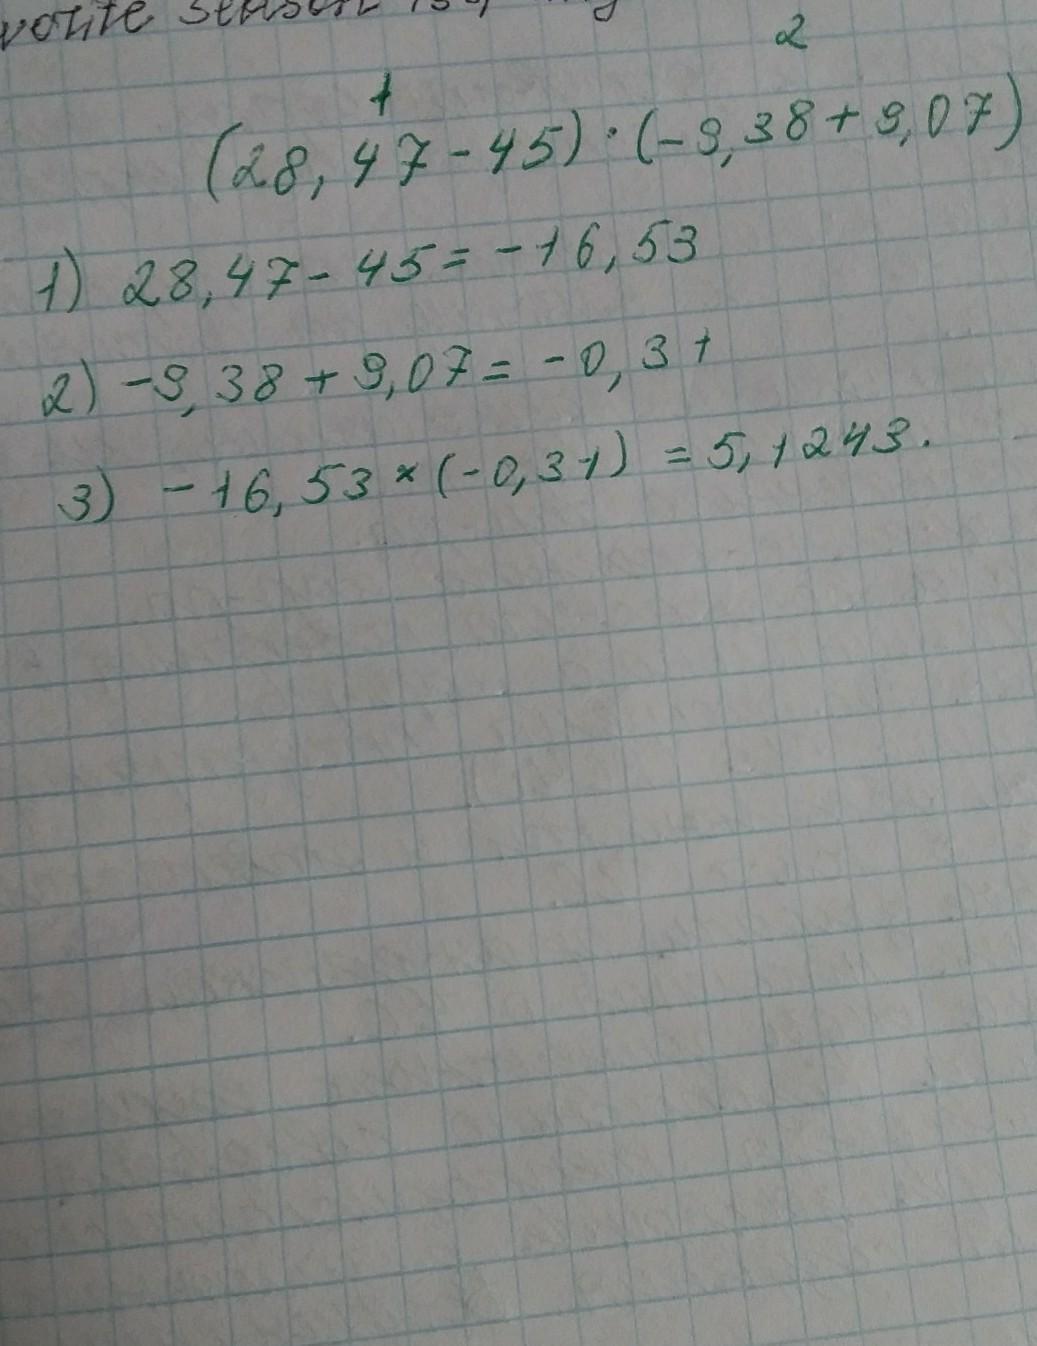 2
1
(28,47-45)·(-9,38+9,07)
1) 28,47-45=-16,53
2) -9,38+9,07=-0,31
3) -16,53×(-0,31)=5,1243.